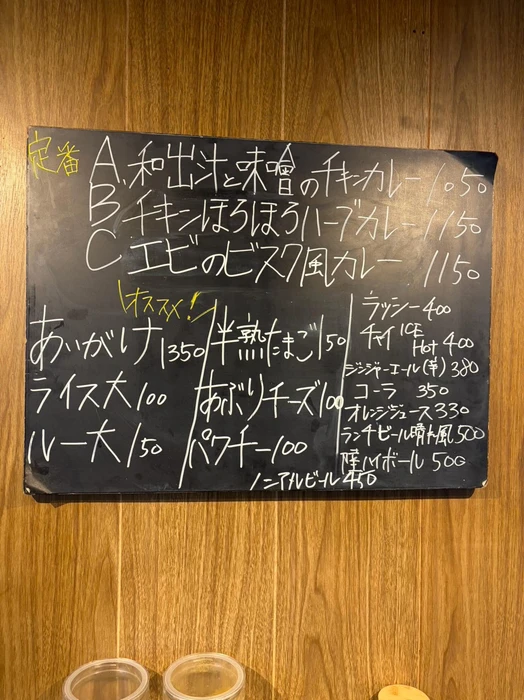 定番
A.和出汁と味噌のチキンカレー 1050
B チキンほろほろハーブカレー 1150
C エビのビスク風カレー 1150
\オススメ!/
あいがけ 1350
ライス大 100
ルー大 150
半熟たまご 150
あぶりチーズ 100
パクチー 100
ノンアルビール 450
ラッシー 400
チャイ ICE
Hot 400
ジンジャーエール(辛) 380
コーラ 350
オレンジジュース 330
ランチビール 晴れ風 500
陸ハイボール 500